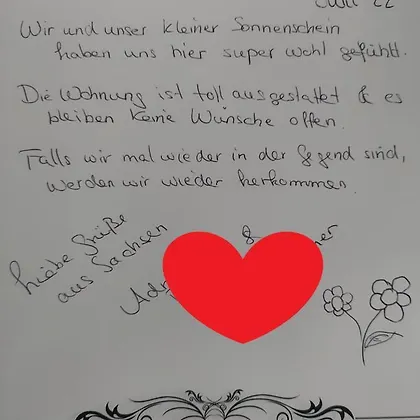 22
Wir und unser kleiner Sonnenschein
haben uns hier super wohl gefühlt.
Die Wohnung ist toll ausgestattet & es
bleiben keine Wünsche offen.
Falls wir mal wieder in der Gegend sind,
werden wir wieder herkommen.
liebe Grüße
aus Sachsen
&